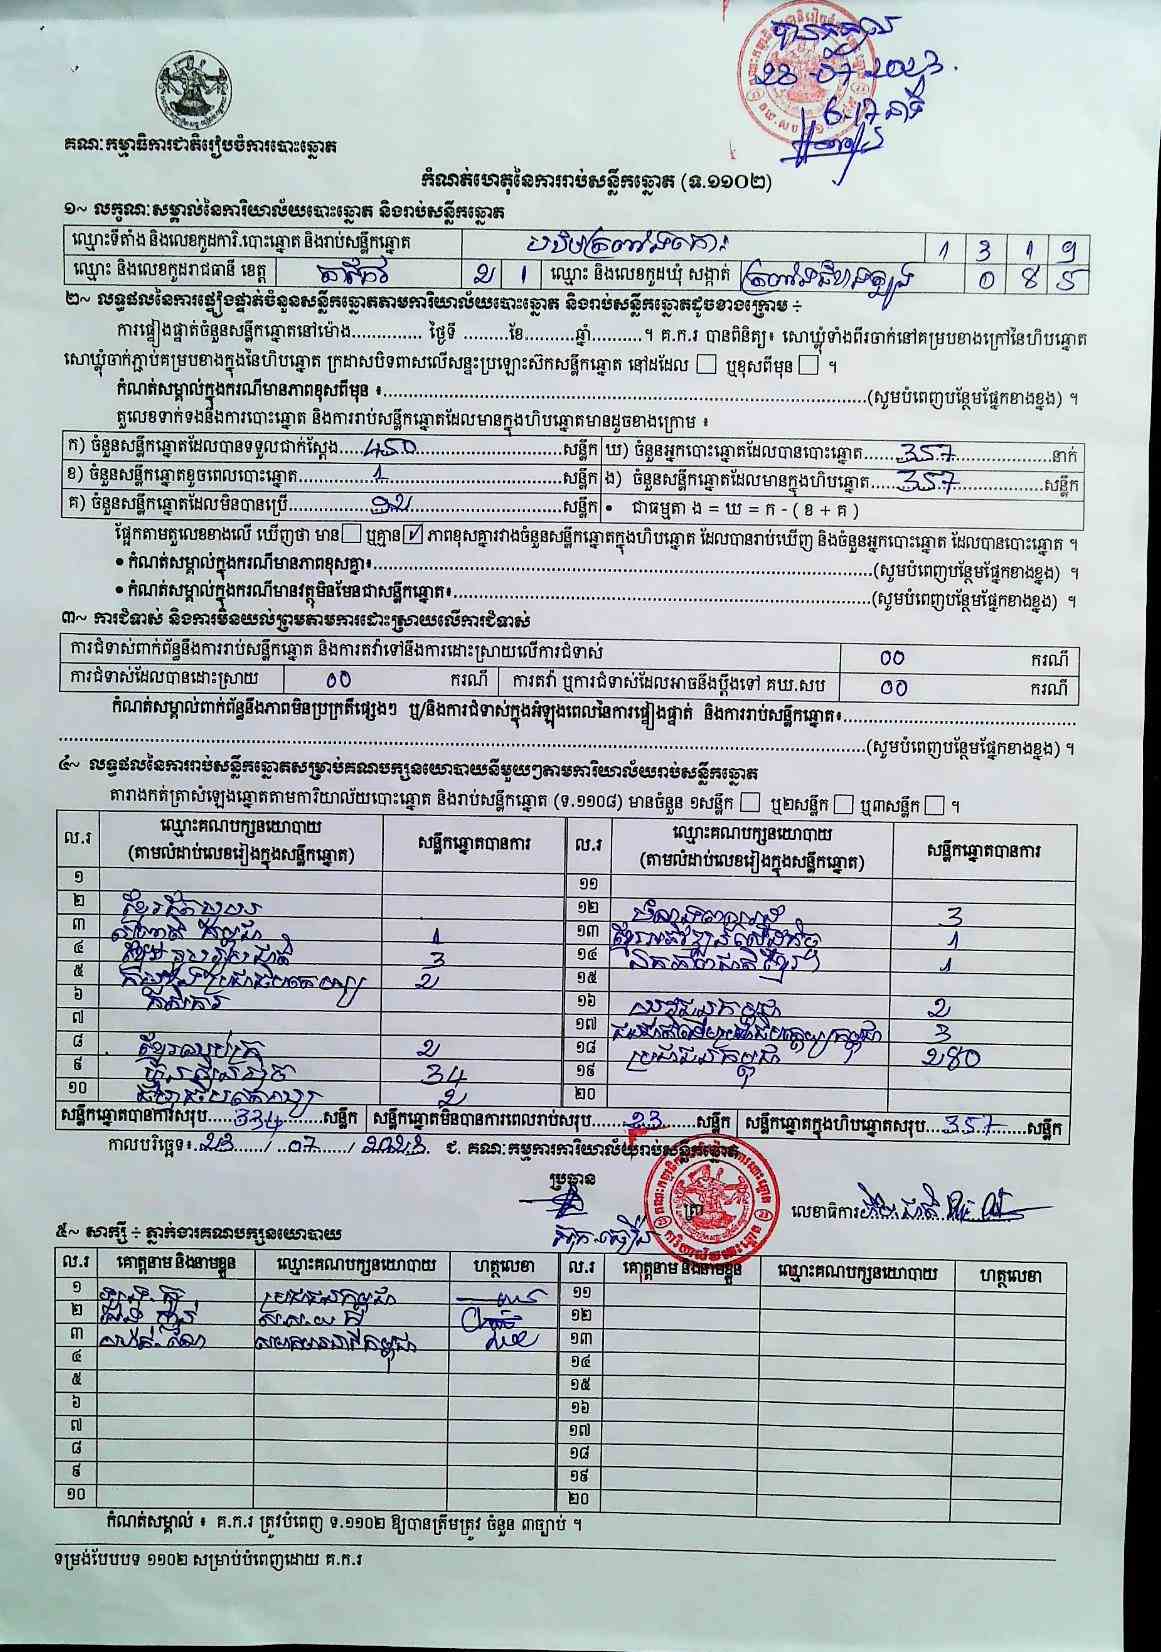 បានទទួល
23-07-2023.
គណៈកម្មាធិការជាតិរៀបចំការបោះឆ្នោត
កំណត់ហេតុនៃការរាប់សន្លឹកឆ្នោត (ទ.១១០២)
១~ លក្ខណៈសម្គាល់នៃការិយាល័យបោះឆ្នោត និងរាប់សន្លឹកឆ្នោត
ឈ្មោះទីតាំង និងលេខកូដការិ.បោះឆ្នោត និងរាប់សន្លឹកឆ្នោត 1 3 1 9
ឈ្មោះ និងលេខកូដរាជធានី ខេត្ត តាកែវ 2 1 ឈ្មោះ និងលេខកូដឃុំ សង្កាត់ 0 8 5
២~ លទ្ធផលនៃការផ្ទៀងផ្ទាត់ចំនួនសន្លឹកឆ្នោតតាមការិយាល័យបោះឆ្នោត និងរាប់សន្លឹកឆ្នោតដូចខាងក្រោម ÷
ការផ្ទៀងផ្ទាត់ចំនួនសន្លឹកឆ្នោតនៅម៉ោង............. ថ្ងៃទី ..........ខែ...........ឆ្នាំ...........។ គ.ក.រ បានពិនិត្យ៖ សោឃ្លុំទាំងពីរចាក់នៅគម្របខាងក្រៅនៃហិបឆ្នោត
សោឃ្លុំចាក់ភ្ជាប់គម្របខាងក្នុងនៃហិបឆ្នោត ក្រដាសបិទពាសលើសន្ទះប្រឡោះស៊កសន្លឹកឆ្នោត នៅដដែល ☐ ឬខុសពីមុន ☐ ។
កំណត់សម្គាល់ក្នុងករណីមានភាពខុសពីមុន ៖...........(សូមបំពេញបន្ថែមផ្នែកខាងខ្នង) ។
តួលេខទាក់ទងនឹងការបោះឆ្នោត និងការរាប់សន្លឹកឆ្នោតដែលមានក្នុងហិបឆ្នោតមានដូចខាងក្រោម ៖
ក) ចំនួនសន្លឹកឆ្នោតដែលបានទទួលជាក់ស្តែង....450.....សន្លឹក ឃ) ចំនួនអ្នកបោះឆ្នោតដែលបានបោះឆ្នោត......357......នាក់
ខ) ចំនួនសន្លឹកឆ្នោតខូចពេលបោះឆ្នោត.....1.....សន្លឹក ង) ចំនួនសន្លឹកឆ្នោតដែលមានក្នុងហិបឆ្នោត.....357.....សន្លឹក
គ) ចំនួនសន្លឹកឆ្នោតដែលមិនបានប្រើ.....92.....សន្លឹក • ជាធម្មតា ង = ឃ = ក - ( ខ + គ )
ផ្អែកតាមតួលេខខាងលើ ឃើញថា មាន ☐ ឬគ្មាន ☑ ភាពខុសគ្នារវាងចំនួនសន្លឹកឆ្នោតក្នុងហិបឆ្នោត ដែលបានរាប់ឃើញ និងចំនួនអ្នកបោះឆ្នោត ដែលបានបោះឆ្នោត ។
• កំណត់សម្គាល់ក្នុងករណីមានភាពខុសគ្នា៖...........(សូមបំពេញបន្ថែមផ្នែកខាងខ្នង) ។
• កំណត់សម្គាល់ក្នុងករណីមានវត្ថុមិនមែនជាសន្លឹកឆ្នោត៖...........(សូមបំពេញបន្ថែមផ្នែកខាងខ្នង) ។
៣~ ការជំទាស់ និងការមិនយល់ព្រមតាមការដោះស្រាយលើការជំទាស់
ការជំទាស់ពាក់ព័ន្ធនឹងការរាប់សន្លឹកឆ្នោត និងការតវ៉ាទៅនឹងការដោះស្រាយលើការជំទាស់ 00 ករណី
ការជំទាស់ដែលបានដោះស្រាយ 00 ករណី ការតវ៉ា ឬការជំទាស់ដែលអាចនឹងប្តឹងទៅ គឃ.សប 00 ករណី
កំណត់សម្គាល់ពាក់ព័ន្ធនឹងភាពមិនប្រក្រតីផ្សេងៗ ឬ/និងការជំទាស់ក្នុងអំឡុងពេលនៃការផ្ទៀងផ្ទាត់ និងការរាប់សន្លឹកឆ្នោត៖...........
...........(សូមបំពេញបន្ថែមផ្នែកខាងខ្នង) ។
៤~ លទ្ធផលនៃការរាប់សន្លឹកឆ្នោតសម្រាប់គណបក្សនយោបាយនីមួយៗតាមការិយាល័យរាប់សន្លឹកឆ្នោត
តារាងកត់ត្រាសំឡេងឆ្នោតតាមការិយាល័យបោះឆ្នោត និងរាប់សន្លឹកឆ្នោត (ទ.១១០៨) មានចំនួន ១សន្លឹក ☐ ឬ២សន្លឹក ☐ ឬ៣សន្លឹក ☐ ។
ល.រ ឈ្មោះគណបក្សនយោបាយ សន្លឹកឆ្នោតបានការ ល.រ ឈ្មោះគណបក្សនយោបាយ សន្លឹកឆ្នោតបានការ
(តាមលំដាប់លេខរៀងក្នុងសន្លឹកឆ្នោត) (តាមលំដាប់លេខរៀងក្នុងសន្លឹកឆ្នោត)
១ ១១
២ ១២ 3
៣ 1 ១៣ 1
៤ ខ្មែររួបរួមជាតិ 3 ១៤ 1
៥ 2 ១៥
៦ កសិករ ១៦ យុវជនកម្ពុជា 2
៧ ១៧ 3
៨ 2 ១៨ ប្រជាជនកម្ពុជា 280
៩ ហ្វ៊ុនស៊ិនប៉ិច 34 ១៩
១០ 2 ២០
សន្លឹកឆ្នោតបានការសរុប......334......សន្លឹក សន្លឹកឆ្នោតមិនបានការពេលរាប់សរុប......23......សន្លឹក សន្លឹកឆ្នោតក្នុងហិបឆ្នោតសរុប....357......សន្លឹក
កាលបរិច្ឆេទ៖.23..../..07..../..2023. ជ. គណៈកម្មការការិយាល័យរាប់សន្លឹកឆ្នោត
ប្រធាន
ត្រា លេខាធិការ
៥~ សាក្សី ÷ ភ្នាក់ងារគណបក្សនយោបាយ
ល.រ គោត្តនាម និងនាមខ្លួន ឈ្មោះគណបក្សនយោបាយ ហត្ថលេខា ល.រ គោត្តនាម និងនាមខ្លួន ឈ្មោះគណបក្សនយោបាយ ហត្ថលេខា
១ ប្រជាជនកម្ពុជា ១១
២ ១២
៣ ១៣
៤ ១៤
៥ ១៥
៦ ១៦
៧ ១៧
៨ ១៨
៩ ១៩
១០ ២០
កំណត់សម្គាល់ ៖ គ.ក.រ ត្រូវបំពេញ ទ.១១០២ ឱ្យបានត្រឹមត្រូវ ចំនួន ៣ច្បាប់ ។
ទម្រង់បែបបទ ១១០២ សម្រាប់បំពេញដោយ គ.ក.រ